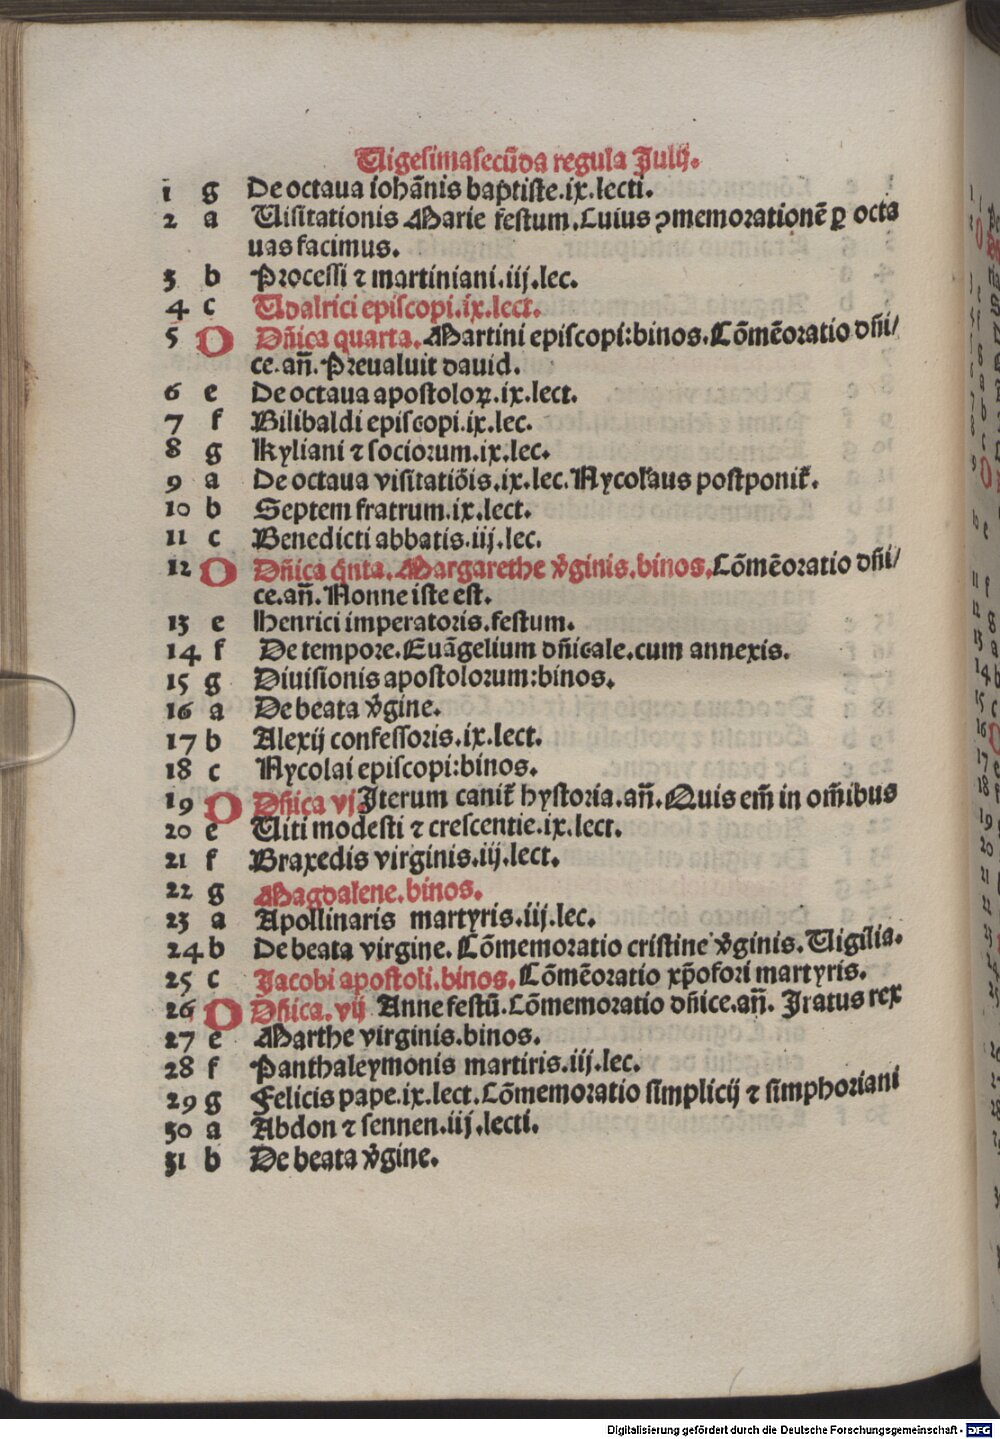 Uigesimasecūda regula Julij.
1 g De octaua iohānis baptiste.ix.lecti.
2 a Uisitationis Marie festum.Cuius ꝯmemorationē ꝑ octa
uas facimus.
3 b Processi ⁊ martiniani.iij.lec.
4 c Udalrici episcopi.ix.lect.
5 D Dn̄ica quarta.Martini episcopi:binos.Cōmēoratio dn̄i/
ce.an̄.Preualuit dauid.
6 e De octaua apostoloꝝ.ix.lect.
7 f Bilibaldi episcopi.ix.lec.
8 g Kyliani ⁊ sociorum.ix.lec.
9 a De octaua visitatiōis.ix.lec.Nycolaus postponit̄.
10 b Septem fratrum.ix.lect.
11 c Benedicti abbatis.iij.lec.
12 D Dn̄ica q̄nta.Margarethe v̄ginis.binos.Cōmēoratio dn̄i/
ce.an̄.Nonne iste est.
13 e Henrici imperatoris.festum.
14 f De tempore.Euāgelium dn̄icale.cum annexis.
15 g Diuisionis apostolorum:binos.
16 a De beata v̄gine.
17 b Alexij confessoris.ix.lect.
18 c Nycolai episcopi:binos.
19 D Dn̄ica vj Iterum canit̄ hystoria.an̄.Quis em̄ in om̄ibus
20 e Uiti modesti ⁊ crescentie.ix.lect.
21 f Braxedis virginis.iij.lect.
22 g Magdalene.binos.
23 a Apollinaris martyris.iij.lec.
24 b De beata virgine. Cōmemoratio cristine v̄ginis.Uigilia.
25 c Jacobi apostoli.binos.Cōmēoratio xp̄ofori martyris.
26 D Dn̄ica.vij Anne festū.Cōmemoratio dn̄ice.an̄. Iratus rex
27 e Marthe virginis.binos.
28 f Panthaleymonis martiris.iij.lec.
29 g Felicis pape.ix.lect.Cōmemoratio simplicij ⁊ simphoriani
30 a Abdon ⁊ sennen.iij.lecti.
31 b De beata v̄gine.
Digitalisierung gefördert durch die Deutsche Forschungsgemeinschaft - DFG